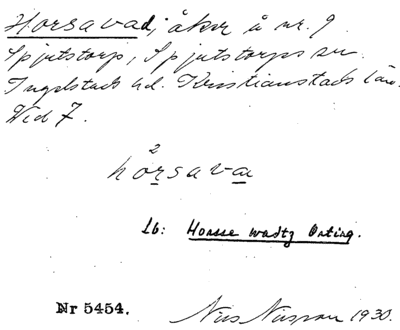 Horsavad, åker å nr. 9
Spjutstorp, Spjutstorps sn.
Ingelstads hd. Kristianstads län.
Vid 7.
2
hårsava
Lb: Horsse wadtz Örting.
Nr 5454.
Nils 1930.